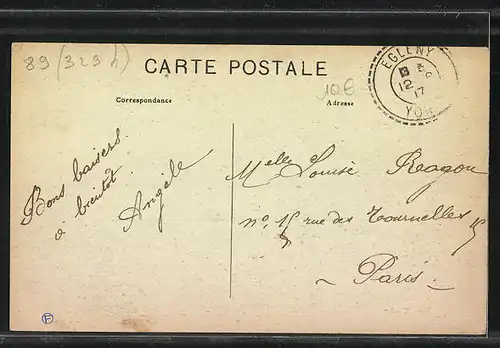 89 (329 h)
CARTE POSTALE
Correspondance
Adresse
10€
EGLENY
12
17
YON
Bons baisers.
à bientôt.
Angèle
Melle Louise Reagou
no. 15 rue des Tournelles 15
Paris.
F